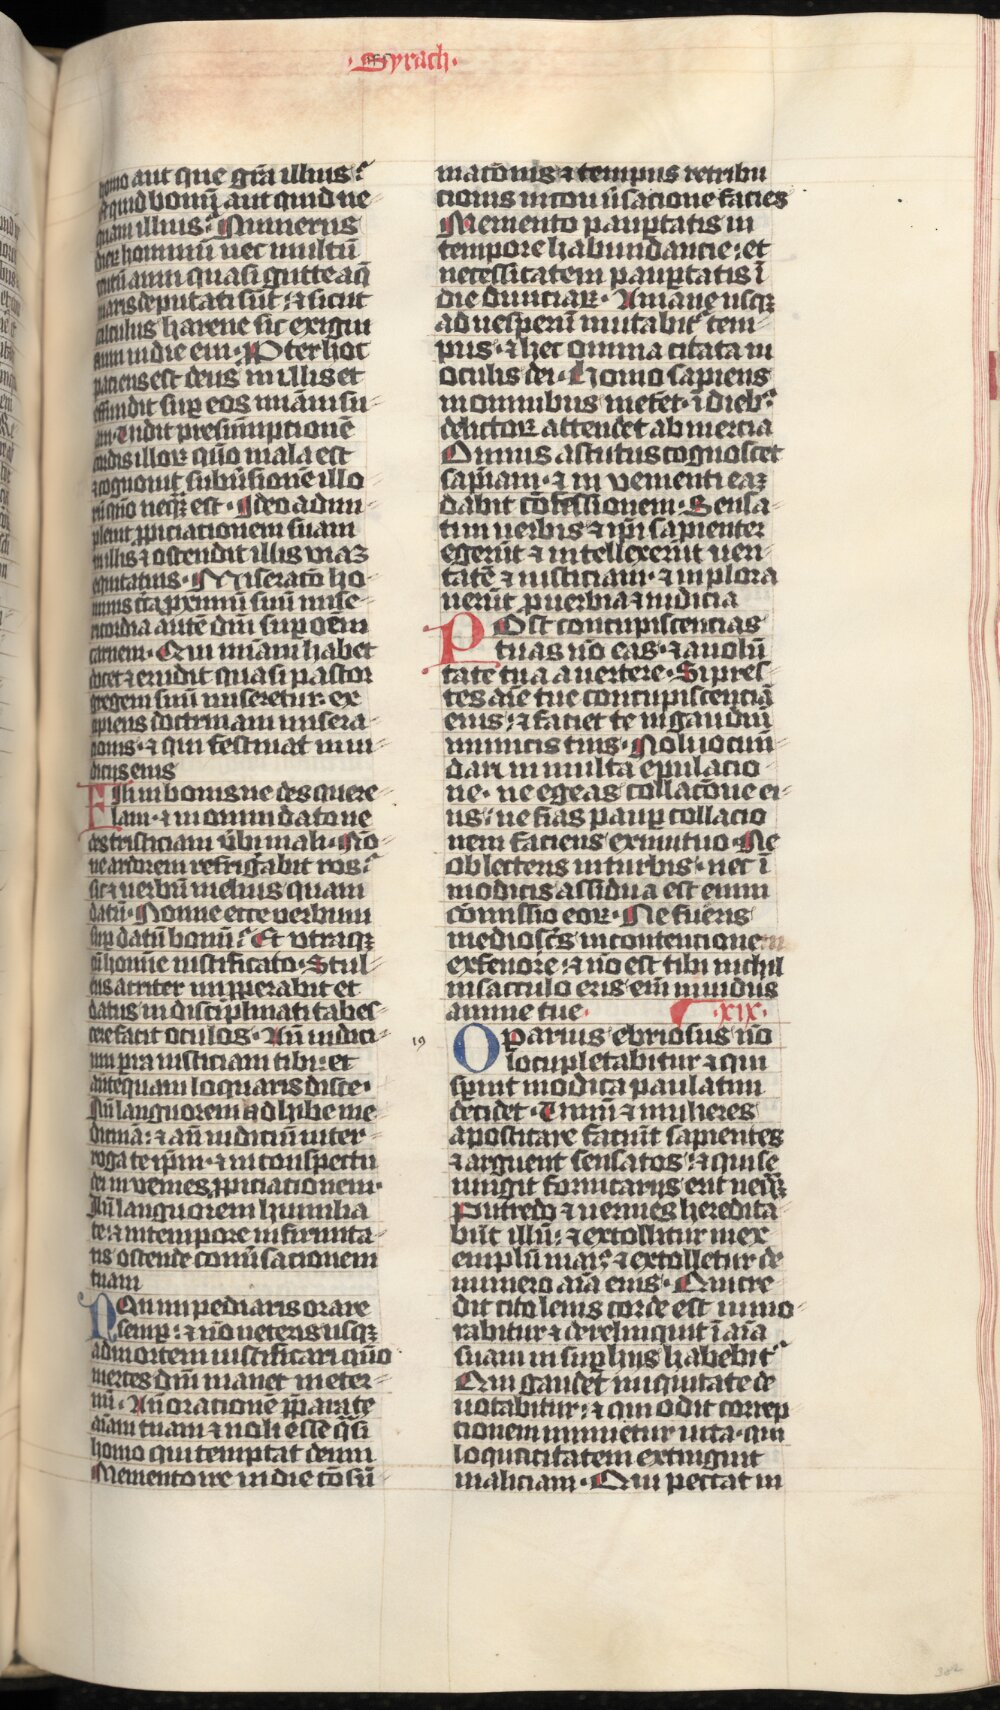 Syrach
homo aut que gr̄a illius?
et quid bonū aut quid ne-
quam illius? Numerus
dierꝝ hominū ut multū
centū anni quasi gutte aq̄
maris deputati sūt: ⁊ sicut
calculus harene sic exigui
anni in die eui. Propter hoc
paciens est deus in illis et
effundit suꝑ eos miam su-
am. Vidit presumptionē
cordis illoꝝ qm̄o mala est
⁊ cognouit subūsionē illo-
rū qm̄o neqꝫ est. Ideo adim-
pleuit ꝓpiciationem suam
in illis ⁊ ostendit illis viaꝫ
equitatis. Miseratō ho-
minis cīa ꝓximū suū mise-
ricordia autē dn̄i suꝑ oēm
carnem. Qui miam habet
docet ⁊ erudit quasi pastor
gregem suū miseretur ex-
cipiens doctrinam misera-
cionis. ⁊ qui festinat in iu-
dicijs eius
Fili in bonis ne des quere-
lam. ⁊ in omni dato ne
des tristiciam ūbi mali. Nō-
ne ardorem refrigabit ros?
sic ⁊ uerbū melius quam
datū. Nonne ecce verbum
suꝑ datū bonū? Et vtraqꝫ
cū homine iustificato. Stul-
tus acriter impperabit et
datus indisciplinati tabes-
cere facit oculos. An̄ iudici-
um pra iusticiam tibi: et
anteq̄uam loquaris disce.
An̄ languorem adhibe me-
dicinā: ⁊ an̄ iudiciū inter-
roga te ip̄m. ⁊ in conspectu
dei inuenies ꝓpiciationem.
An̄ languorem humilia
te: ⁊ in tempore infirmita-
tis ostende conūsacionem
tuam
Non impediaris orare
semꝑ: ⁊ nō ueteris usqꝫ
ad mortem iustificari qm̄o
merces dn̄i manet in eter-
nū. An̄ orationē p̄para te
aīam tuam ⁊ noli esse q̄si
homo qui temptat deum
Memento ire in die cōsū-
macōnis ⁊ tempus retribu
cionis in conūsacione faciei
Memento pauꝑtatis in
tempore habundancie: et
necessitatem pauꝑtatis ī
die diuiciaꝝ. A mane usqꝫ
ad uesperū mutabit᷑ tem-
pus. ⁊ hec omnia citata in
oculis dei. Homo sapiens
in omnibus metet. ī dieb᷒
delictoꝝ attendet ab inercia
Omnis astutus cognoscet
sapīam. ⁊ inuenienti eaꝫ
dabit cōfessionem. Sensa-
ti in uerbis ⁊ ip̄i sapienter
egerūt ⁊ intellexerūt ueri-
tatē ⁊ iusticiam. ⁊ inplora
uerūt ꝓuerbia ⁊ iudicia
Post concupiscencias
tuas nō eas. ⁊ a uolū
tate tua auertere. Si pres-
tes aīe tue concupiscenciā
eius: ⁊ faciet te in gaudiū
inimicis tuis. Noli iocun-
dari in multa epulacio-
ne. ne egeas collacōne ei-
us: ne fias pauꝑ collacio
nem faciens ex mutuo. Ne
oblecteris in turbis. nec ī
modicis assidua est enim
cōmissio eoꝝ. Ne fueris
mediocͥs in contentionem
ex fenore: ⁊ nō est tibi nichil
in sacculo eris eīm inuidus
anime tue. XIX.
19
Oparius ebriosus nō
locupletabitur ⁊ qui
spnit modica paulatim
decidet. Vinū ⁊ mulieres
apostitare faciūt sapientes
⁊ arguent sensatos. ⁊ qui se
iungit fornicarijs erit neqꝫ
Putredo ⁊ uermes heredita
būt illū: ⁊ extolletur in ex-
emplū maiꝰ ⁊ extolletur de
numero aīa eius. Qui cre-
dit cito leuis corde est mino-
rabitur ⁊ derelinquit ī aīa
suam in suꝑ huis habebit᷑
Qui gaudet iniquitate de
notabitur: ⁊ qui odit correp
tionem minuetur uita. qui
loquacitatem extinguit
maliciam. Qui peccat in
302